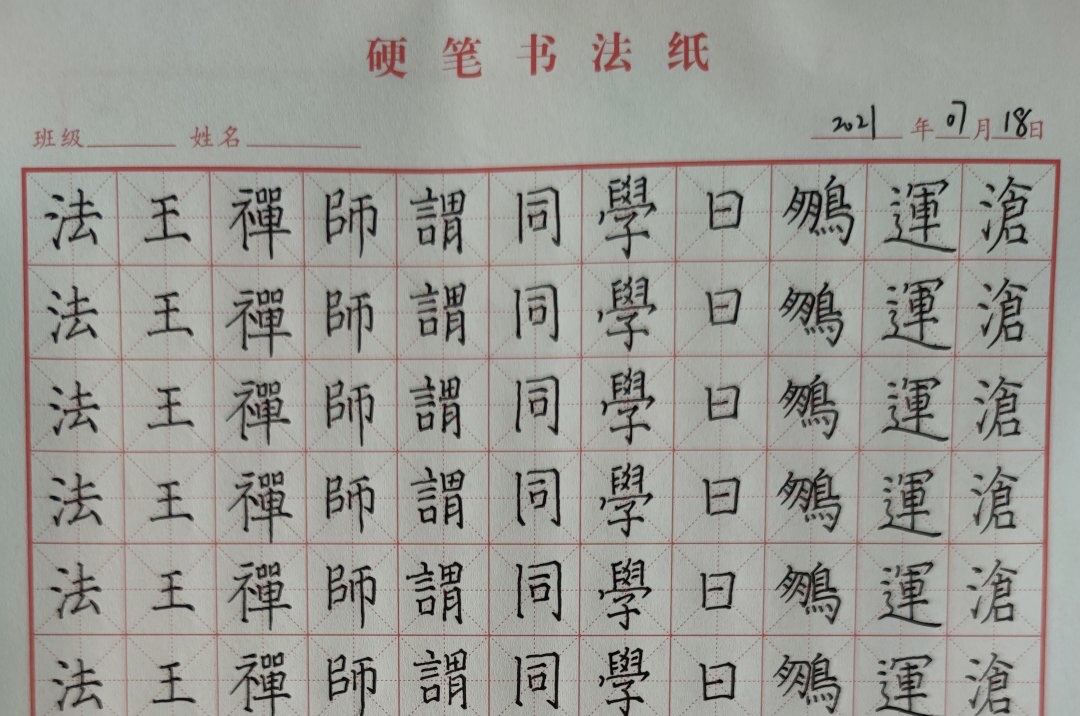 硬笔书法纸
班级 姓名 2021年07月18日
法王禪師謂同學曰鵬運滄
法王禪師謂同學曰鵬運滄
法王禪師謂同學曰鵬運滄
法王禪師謂同學曰鵬運滄
法王禪師謂同學曰鵬運滄
法王禪師謂同學曰鵬運滄